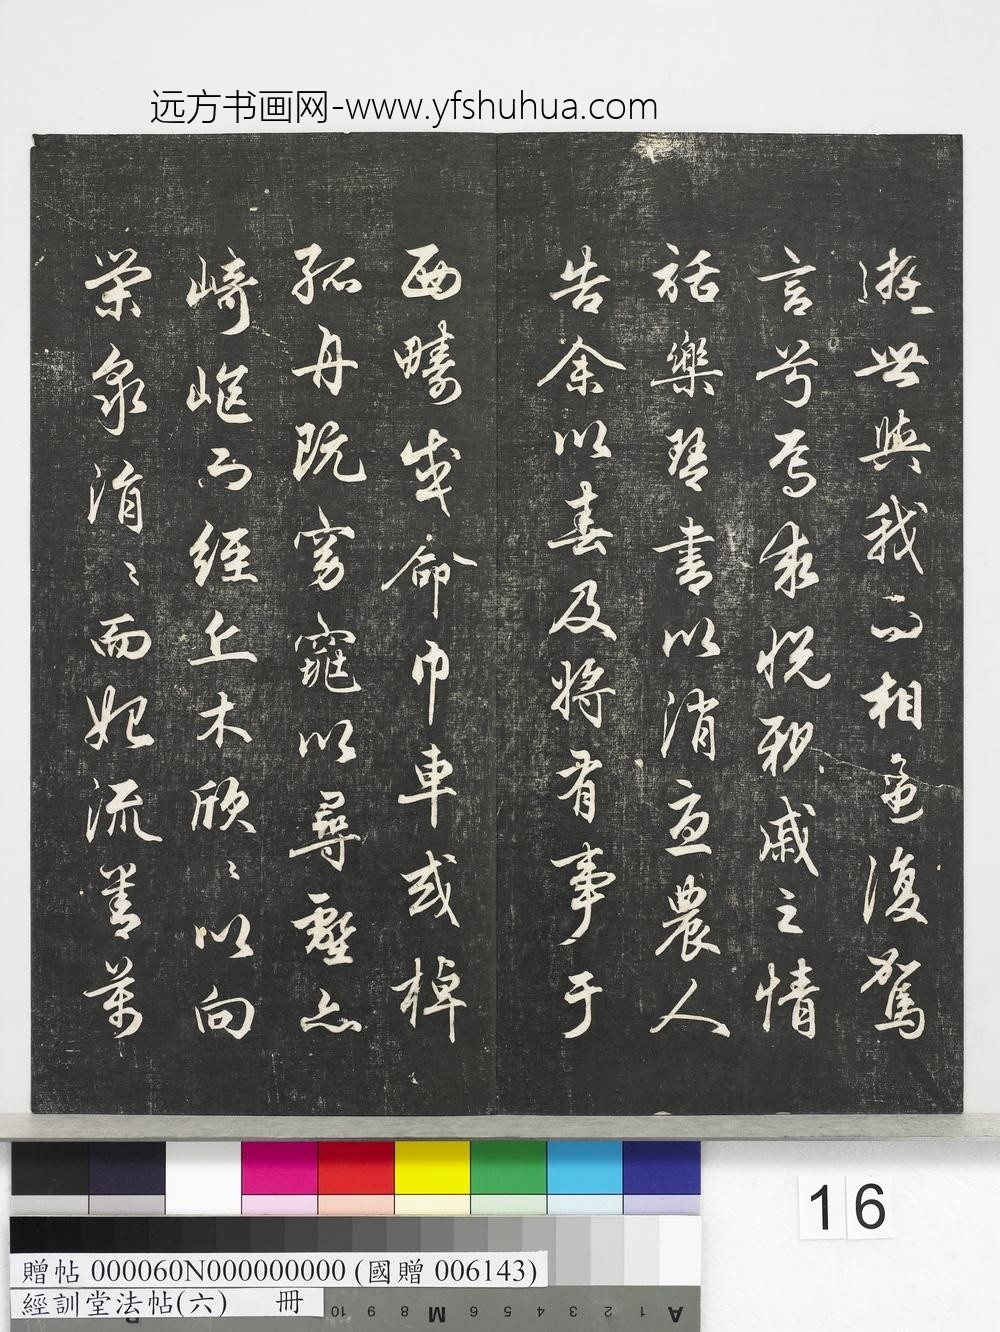 远方书画网-www.yfshuhua.com
遊世與我而相遺復駕
言兮焉求悅親戚之情
話樂琴書以消憂農人
告余以春及將有事于
西疇或命巾車或棹
孤舟既窈窕以尋壑亦
崎嶇而經丘木欣〻以向
榮泉涓〻而始流善萬
16
贈帖 000060N000000000 (國贈 006143)
經訓堂法帖(六) 冊
R 10 9 8 M 6 5 4 3 2 1 A